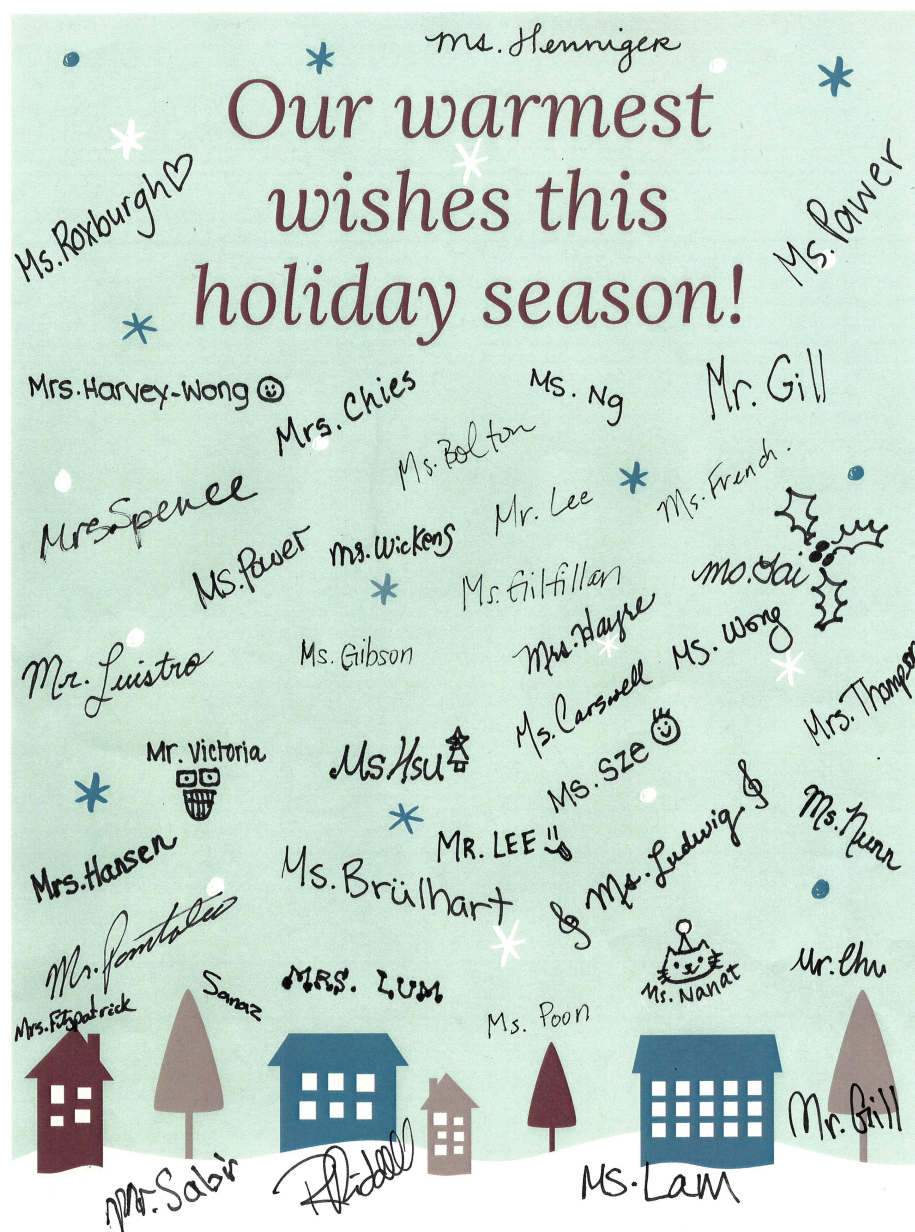 Ms. Henniger
Our warmest
wishes this
holiday season!
Ms. Roxburgh
Ms. Power
Mrs. Harvey-Wong
Mrs. Chies
Ms. Ng
Mr. Gill
Ms. Bolton
Mrs. Spence
Mr. Lee
Ms. French.
Ms. Power
Ms. Wickens
Ms. Gilfillan
Ms. Gai
Mr. Luistro
Ms. Gibson
Mrs. Hayre
Ms. Wong
Ms. Carswell
Mrs. Thompson
Mr. Victoria
Ms Hsu
Ms. Sze
Mrs. Hansen
MR. LEE
Ms. Ludwig
Ms. Nunn
Ms. Brülhart
Mr. Pantaleo
Mrs. Fitzpatrick
Sanaz
MRS. LUM
Ms. Poon
Ms. Nanat
Mr. Chu
Mr. Gill
Mr. Sabir
R Riddell
Ms. Lam